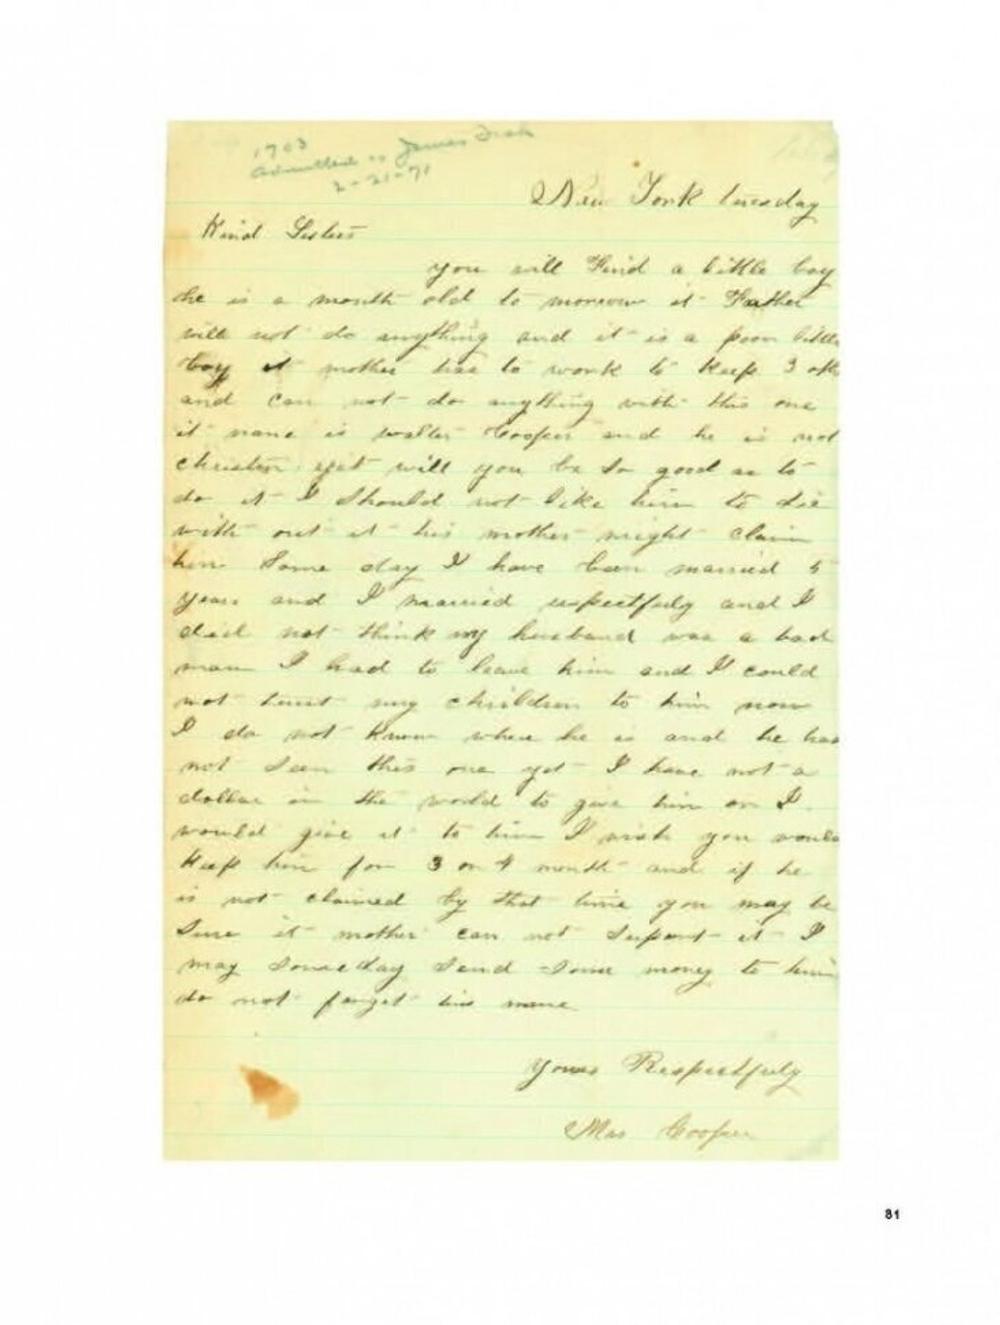 1703
Admitted as James Fish
2-21-71
New York tuesday
Kind Sisters
you will Find a little boy
he is a month old to morrow it Father
will not do anything and it is a poor little
boy it mother has to work to keep 3 oth
and can not do anything with this one
it name is walter Cooper and he is not
christen yet will you be so good as to
do it I should not like him to die
with out it his mother might claim
him some day I have been married 5
years and I married respectfuly and I
did not think my husband was a bad
man I had to leave him and I could
not trust my children to him now
I do not know where he is and he has
not seen this one yet I have not a
dollar in the world to give him or I
would give it to him I wish you would
keep him for 3 or 4 month and if he
is not claimed by that time you may be
sure it mother can not suport it I
may someday send some money to him
do not forget his name
Yours Respectfuly
Mrs Cooper
81